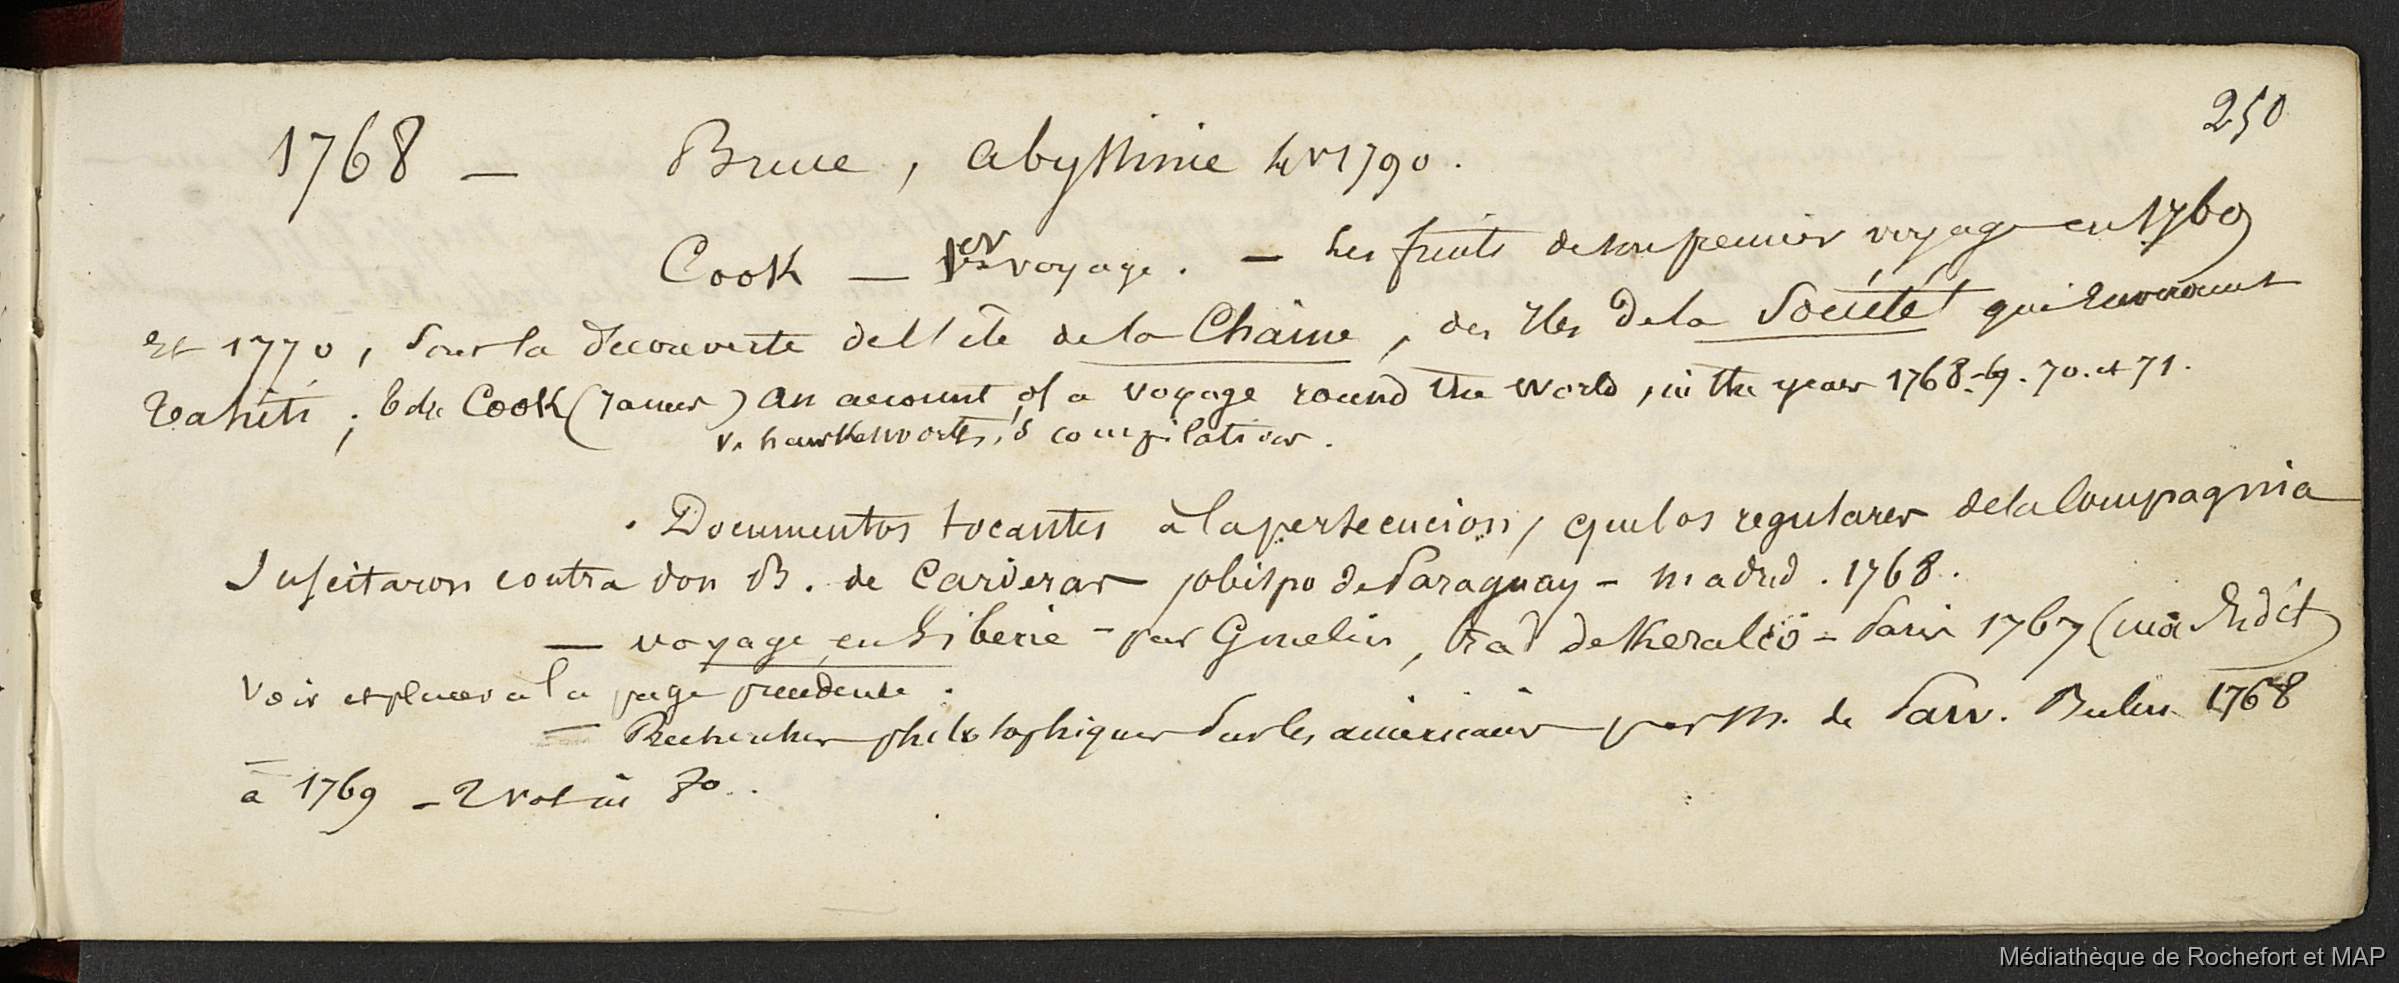 250
1768 — Bruce, abyssinie 1790.
Cook — 1er voyage. — Les fruits de son premier voyage en 1769
Et 1770, sont la decouverte de l'ile de la Chaine, des Iles de la Société qui Environnent
Tahiti; Cook (James) an account of a voyage round the World, in the years 1768-69. 70. et 71.
v. hawkesworth,s compilation.
. Documentos tocantes à la persecucion, que los regulares de la Compagnia
Suscitaron contra don B. de Carderas obispo de Paraguay — Madrid. 1768.
— voyage en Siberie — par Gmelin, trad de Keralio — Paris 1767
Voir et placer a la page precedente.
— Recherches philosophiques Sur les americains par M. de Paw. Berlin 1768
à 1769 — 2 vol in 8o.
Médiathèque de Rochefort et MAP